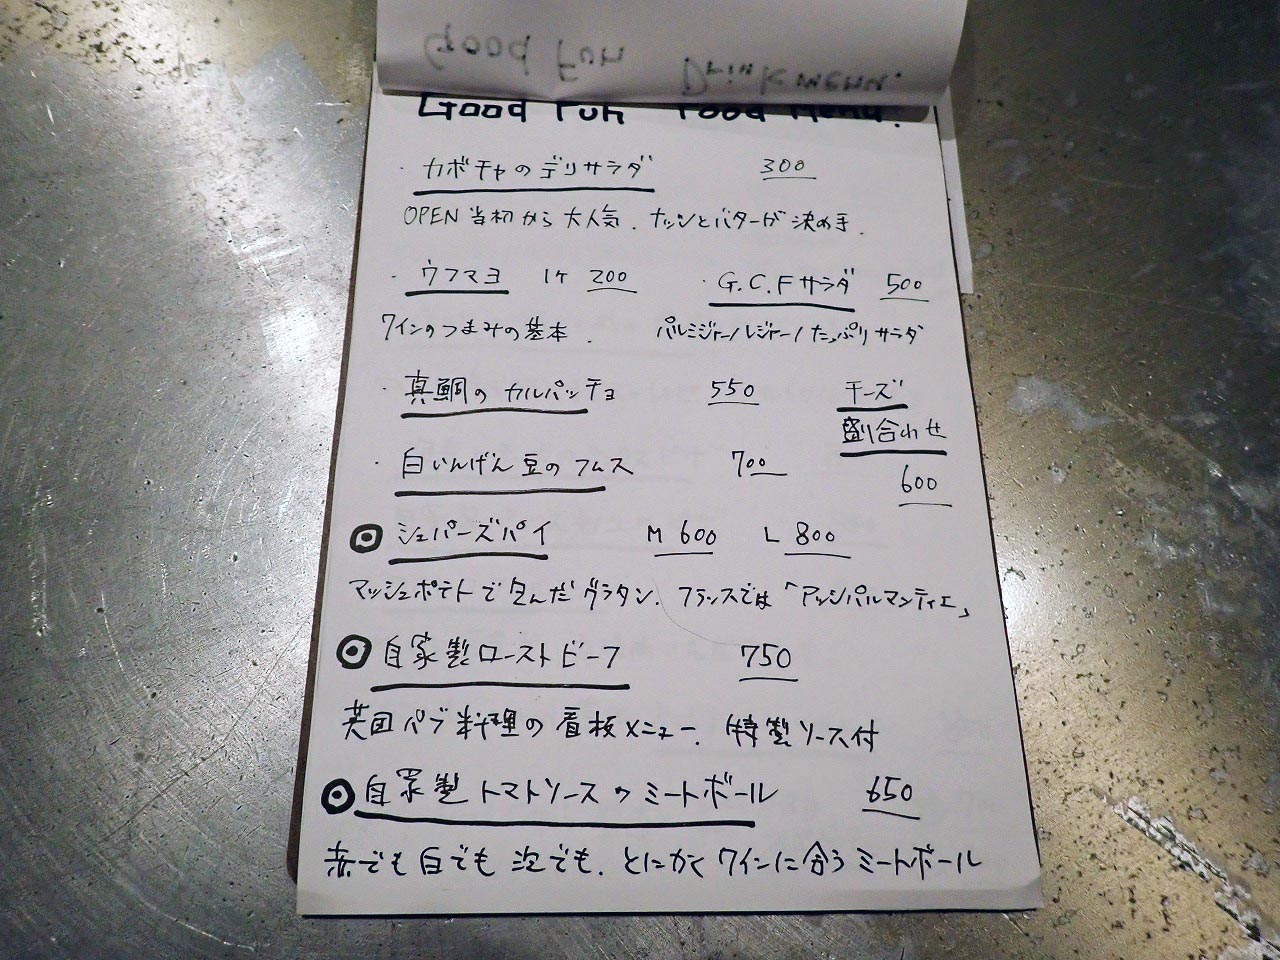 Good Fun
Drink menu.
Good Fun Food Menu.
・カボチャのデリサラダ 300
OPEN当初から大人気．ナッツとバターが決め手．
・ウフマヨ 1ケ 200
ワインのつまみの基本．
・G.C.Fサラダ 500
パルミジャーノレジャーノたっぷりサラダ
・真鯛のカルパッチョ 550
チーズ
盛り合わせ
600
・白いんげん豆のフムス 700
◎シェパーズパイ M 600 L 800
マッシュポテトで包んだグラタン．フランスでは「アッシパルマンティエ」
◎自家製ローストビーフ 750
英国パブ料理の看板メニュー．特製ソース付
◎自家製トマトソースのミートボール 650
赤でも白でも泡でも．とにかくワインに合うミートボール